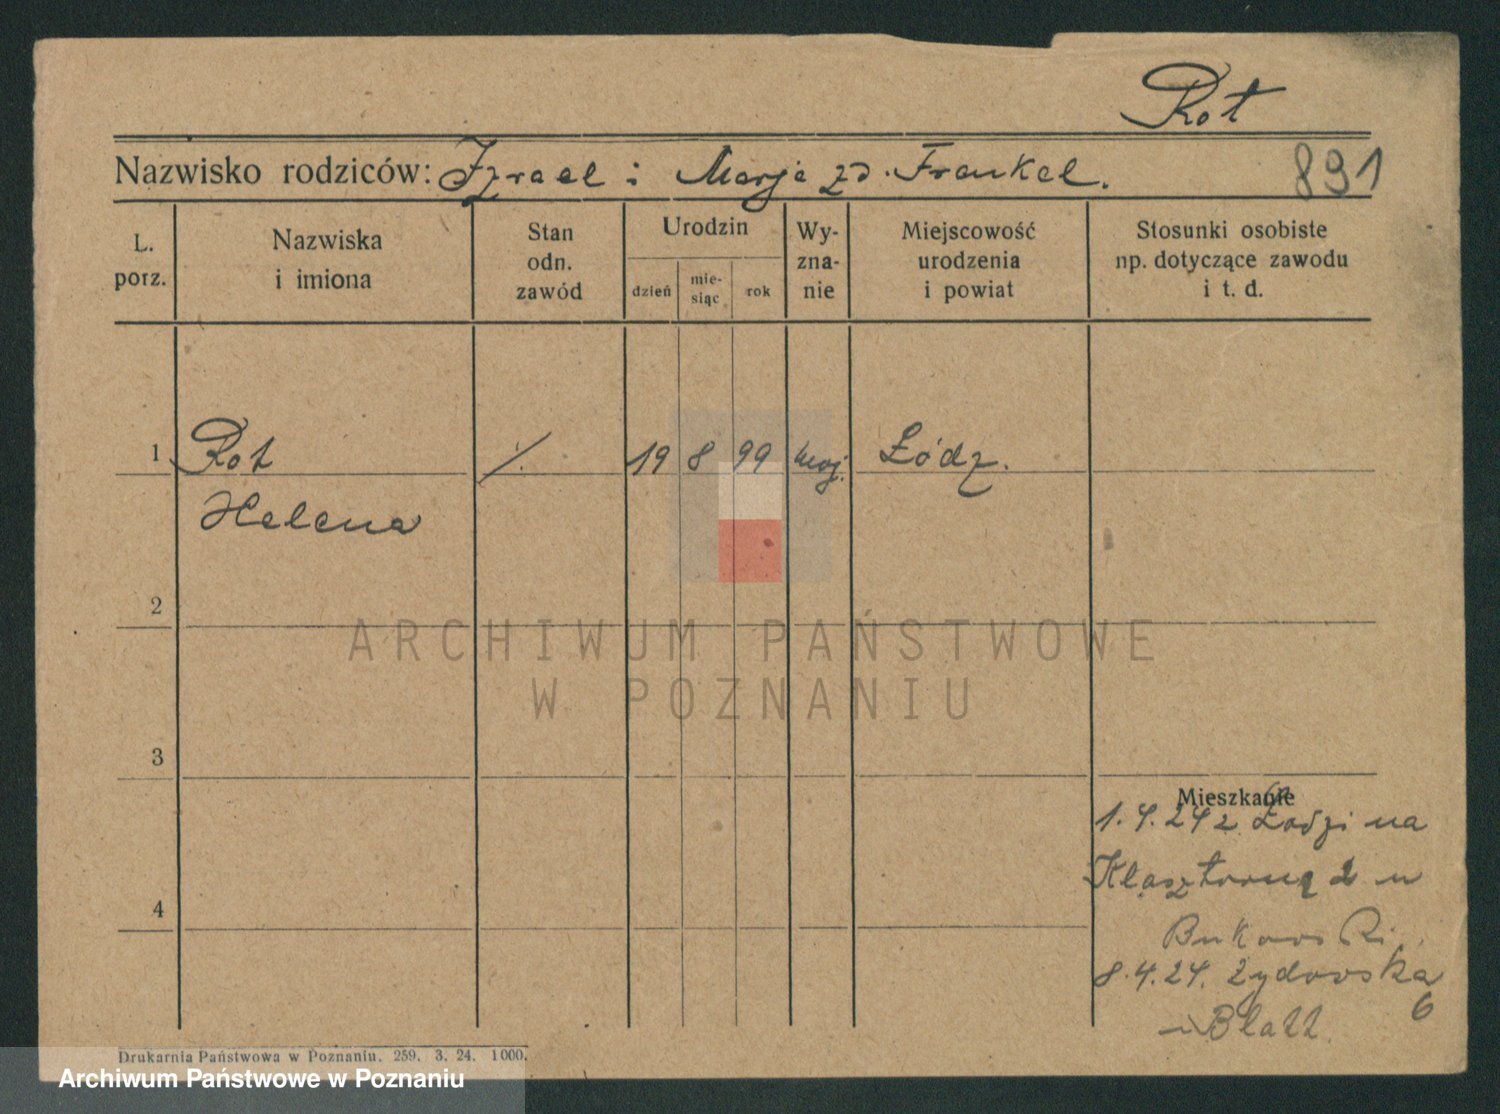 Rot
Nazwisko rodziców: Izrael i Marja zd. Frenkel.
891
L. porz.
Nazwiska i imiona
Stan odn. zawód
Urodzin
dzień
mie-siąc
rok
Wy-zna-nie
Miejscowość urodzenia i powiat
Stosunki osobiste np. dotyczące zawodu i t. d.
1 Rot ./. 19 8 99 moj. Łódz.
Helena
2
3
4
Mieszkanie
1.4.24 z Łodzi na
Klasztorną 2 u
Bukowski.
8.4.24. Zydowska
6
u Blatt.
ARCHIWUM PAŃSTWOWE
W POZNANIU
Drukarnia Państwowa w Poznaniu. 259. 3. 24. 1000.
Archiwum Państwowe w Poznaniu